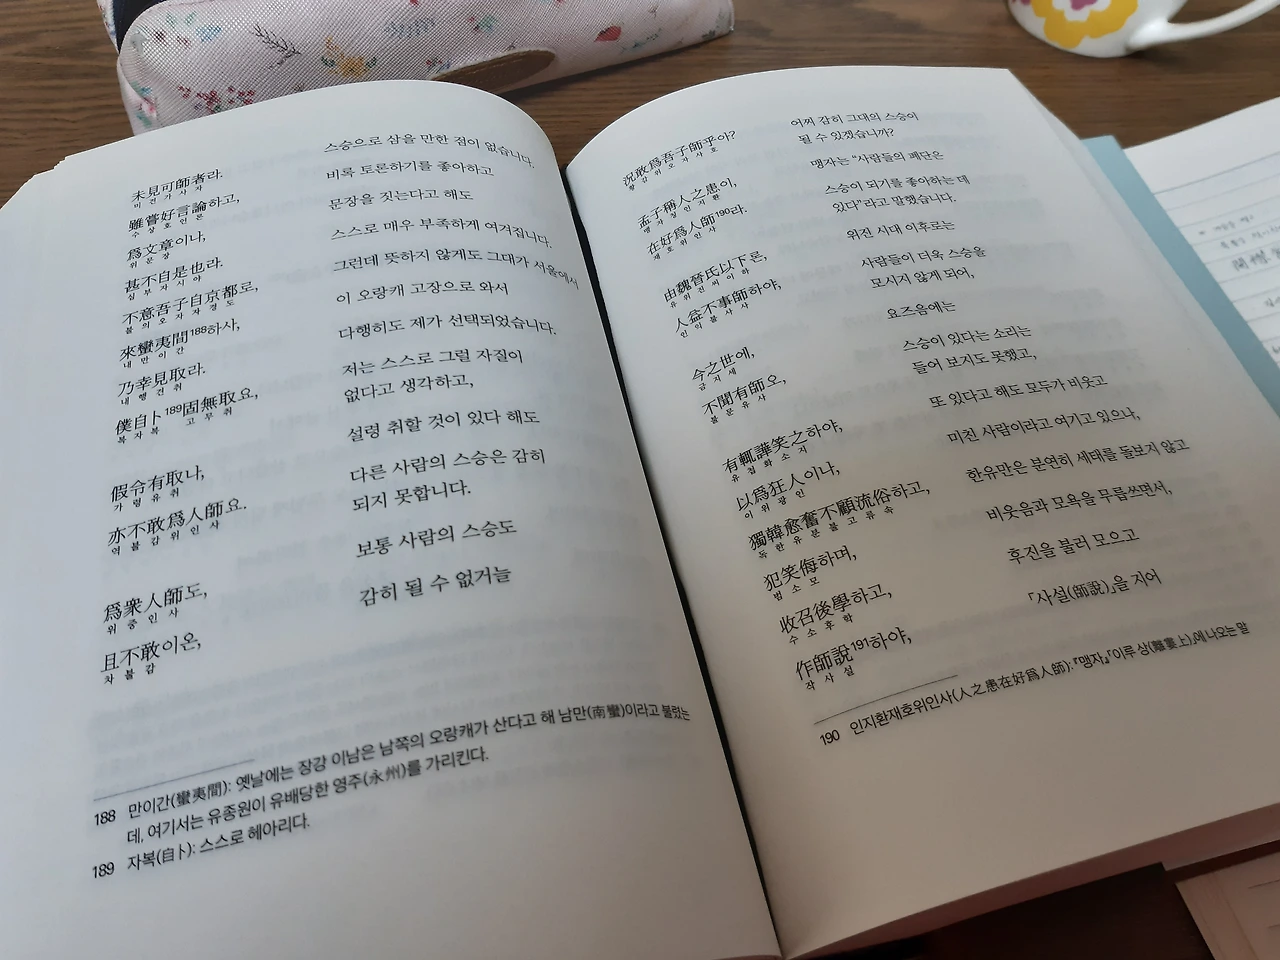 未見可師者라.
미견가사자
스승으로 삼을 만한 점이 없습니다.
雖嘗好言論하고,
수상호언론
비록 토론하기를 좋아하고
爲文章이나,
위문장
문장을 짓는다고 해도
甚不自是也라.
심부자시야
스스로 매우 부족하게 여겨집니다.
不意吾子自京都로,
불의오자자경도
그런데 뜻하지 않게도 그대가 서울에서
來蠻夷間188하사,
내만이간
이 오랑캐 고장으로 와서
乃幸見取라.
내행견취
다행히도 제가 선택되었습니다.
僕自卜189固無取요,
복자복 고무취
저는 스스로 그럴 자질이
없다고 생각하고,
假令有取나,
가령유취
설령 취할 것이 있다 해도
亦不敢爲人師요.
역불감위인사
다른 사람의 스승은 감히
되지 못합니다.
爲衆人師도,
위중인사
보통 사람의 스승도
且不敢이온,
차불감
감히 될 수 없거늘
188 만이간(蠻夷間): 옛날에는 장강 이남은 남쪽의 오랑캐가 산다고 해 남만(南蠻)이라고 불렀는
데, 여기서는 유종원이 유배당한 영주(永州)를 가리킨다.
189 자복(自卜): 스스로 헤아리다.
況敢爲吾子師乎아?
황감위오자사호
어찌 감히 그대의 스승이
될 수 있겠습니까?
孟子稱人之患이,
맹자칭인지환
맹자는 “사람들의 폐단은
在好爲人師190라.
재호위인사
스승이 되기를 좋아하는 데
있다”라고 말했습니다.
由魏晉氏以下로,
유위진씨이하
위진 시대 이후로는
人益不事師하야,
인익불사사
사람들이 더욱 스승을
모시지 않게 되어,
今之世에,
금지세
요즈음에는
不聞有師오,
불문유사
스승이 있다는 소리는
들어 보지도 못했고,
有輒譁笑之하야,
유첩화소지
또 있다고 해도 모두가 비웃고
以爲狂人이나,
이위광인
미친 사람이라고 여기고 있으나,
獨韓愈奮不顧流俗하고,
독한유분불고류속
한유만은 분연히 세태를 돌보지 않고
犯笑侮하며,
범소모
비웃음과 모욕을 무릅쓰면서,
收召後學하고,
수소후학
후진을 불러 모으고
作師說191하야,
작사설
「사설(師說)」을 지어
190 인지환재호위인사(人之患在好爲人師): 『맹자』 「이루 상(離婁上)」에 나오는 말